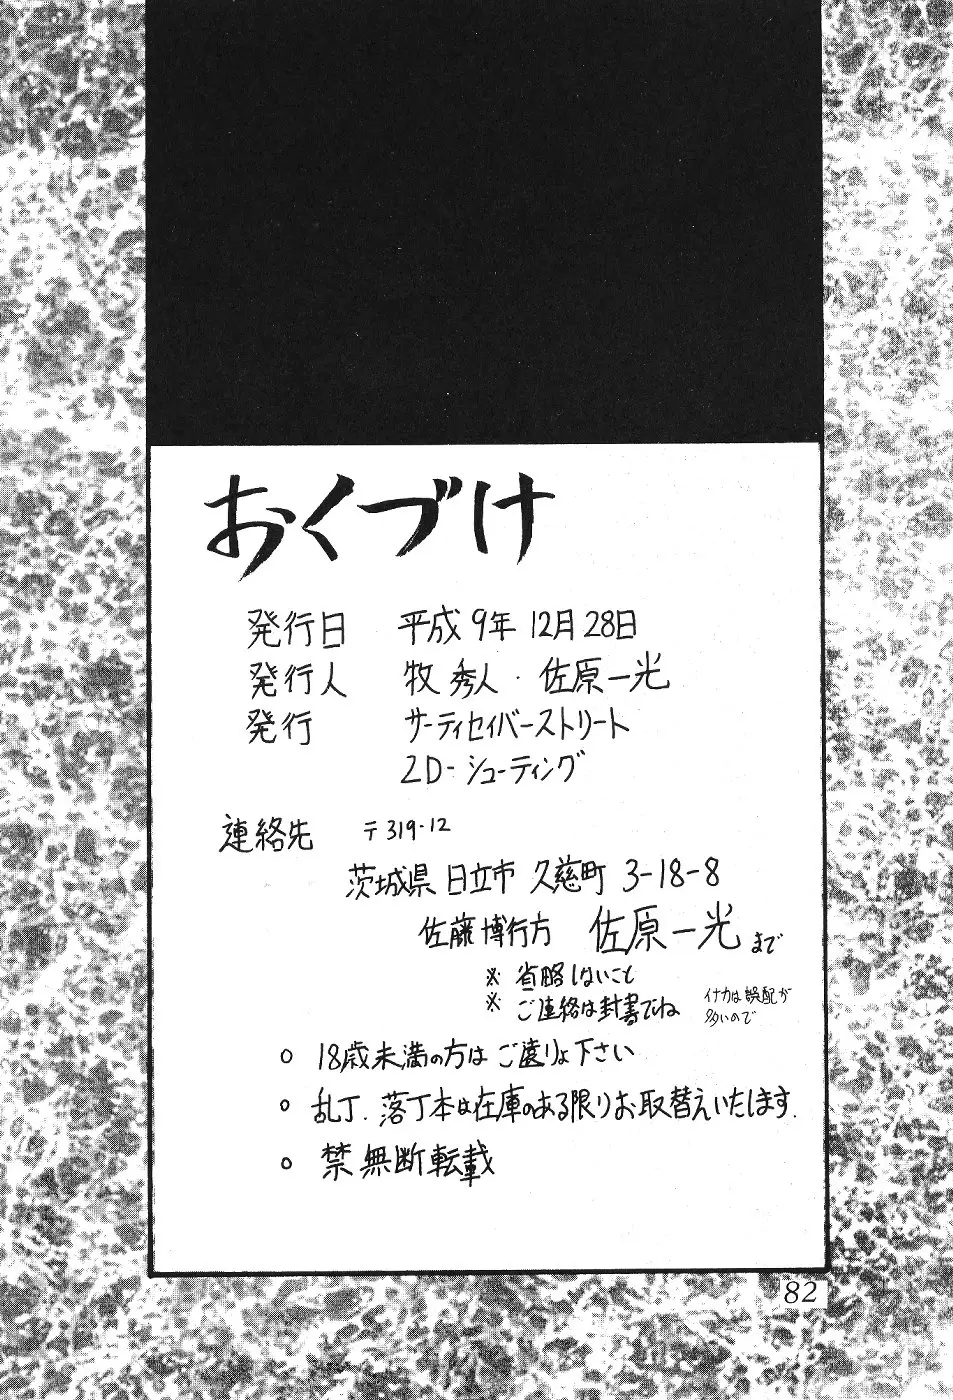 おくづけ
発行日 平成9年12月28日
発行人 牧 秀人・佐原一光
発行 サーティセイバーストリート
2D-シューティング
連絡先 〒319-12
茨城県日立市久慈町3-18-8
佐藤博行方 佐原一光まで
※省略しないこと
※ご連絡は封書でね イナカは誤配が
多いので
○ 18歳未満の方はご遠りょ下さい
○ 乱丁、落丁本は在庫のある限りお取替えいたします.
○ 禁無断転載
82